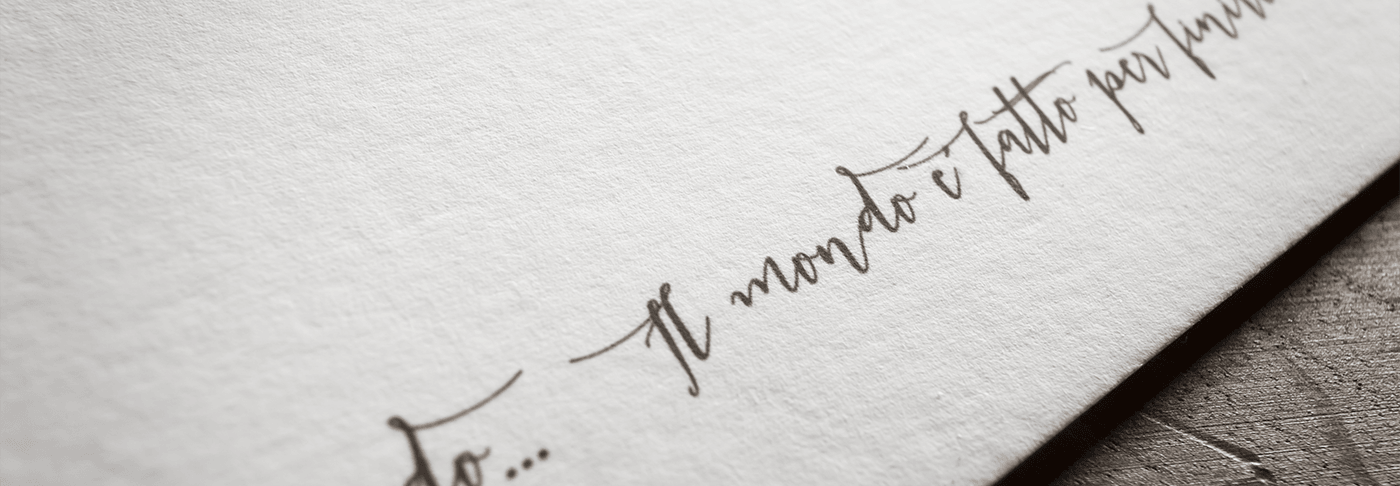 do... Il mondo è fatto per